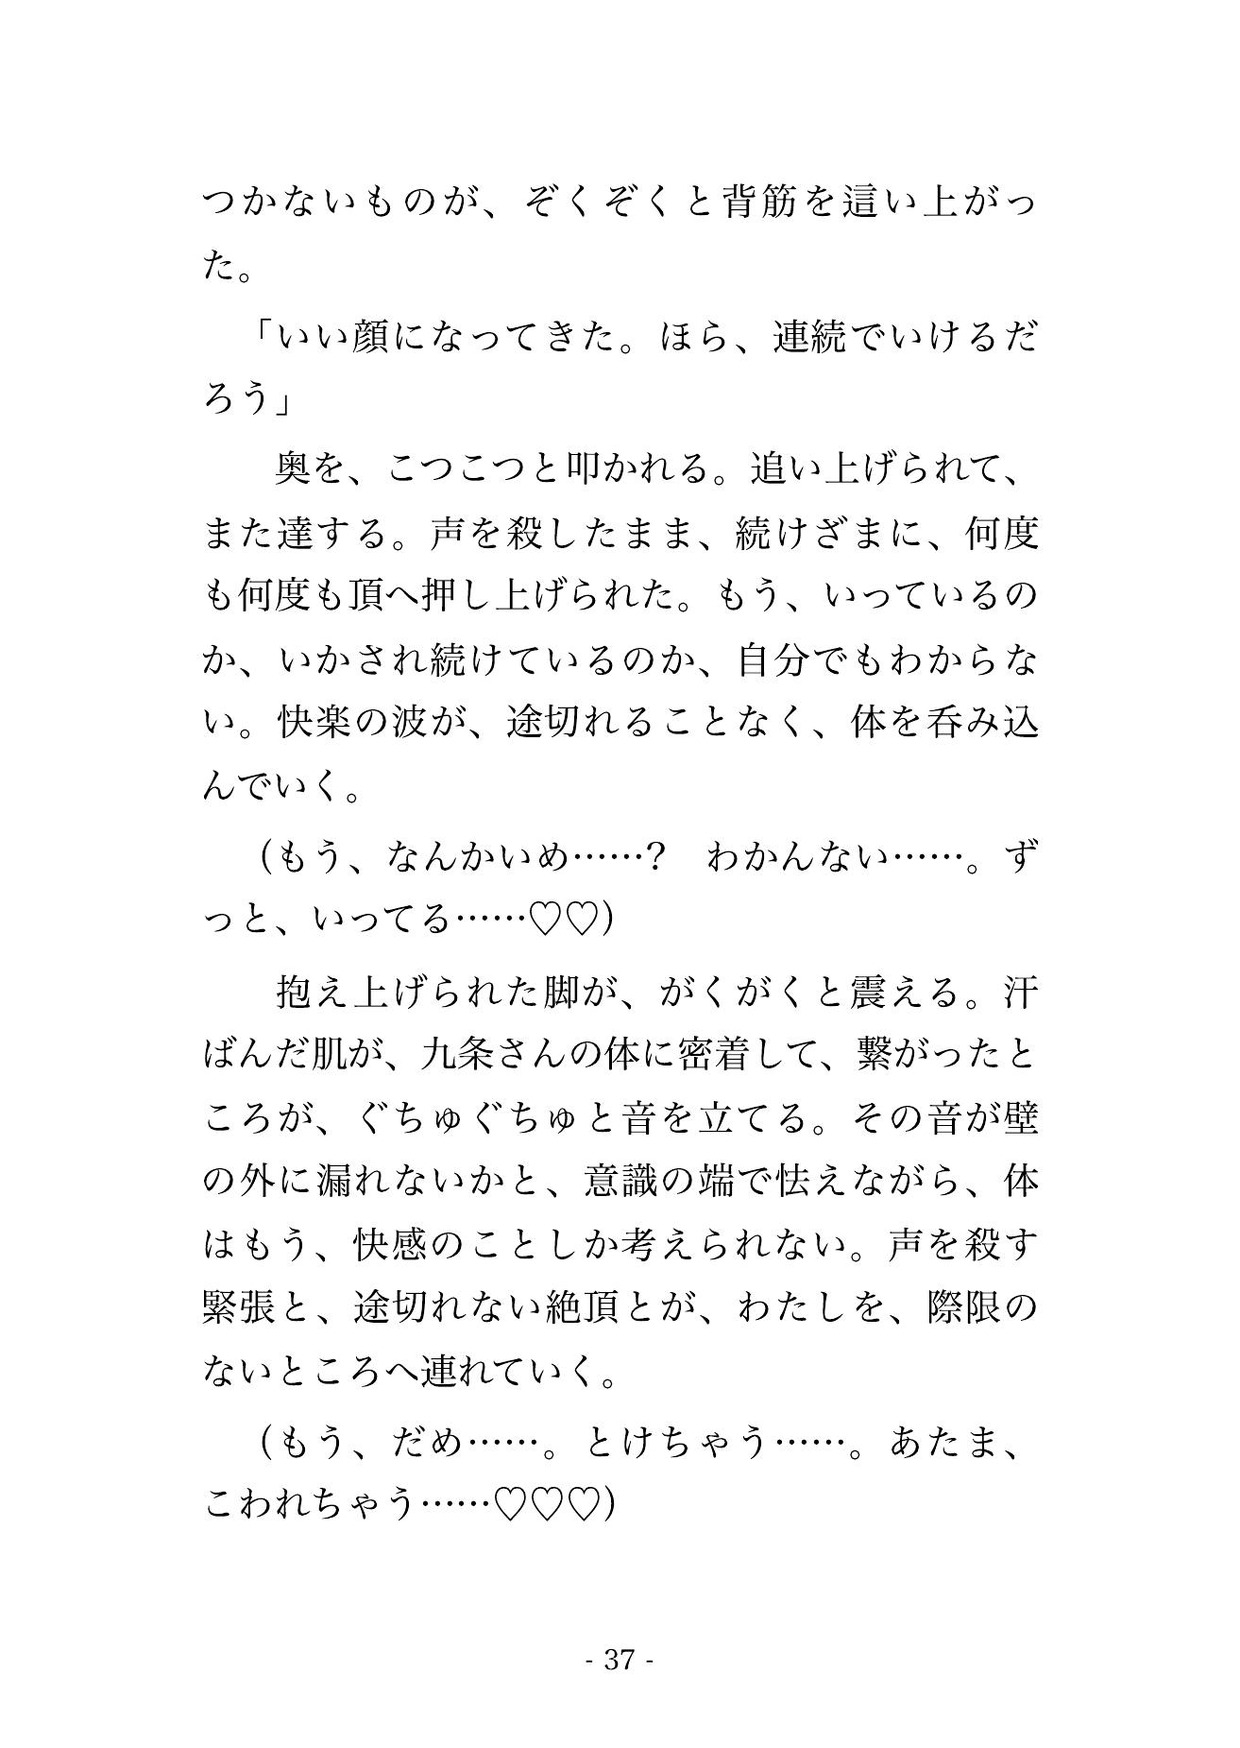 つかないものが、ぞくぞくと背筋を這い上がっ
た。
「いい顔になってきた。ほら、連続でいけるだ
ろう」
奥を、こつこつと叩かれる。追い上げられて、
また達する。声を殺したまま、続けざまに、何度
も何度も頂へ押し上げられた。もう、いっているの
か、いかされ続けているのか、自分でもわからな
い。快楽の波が、途切れることなく、体を呑み込
んでいく。
(もう、なんかいめ……?　わかんない……。ず
っと、いってる……♡♡)
抱え上げられた脚が、がくがくと震える。汗
ばんだ肌が、九条さんの体に密着して、繋がったと
ころが、ぐちゅぐちゅと音を立てる。その音が壁
の外に漏れないかと、意識の端で怯えながら、体
はもう、快感のことしか考えられない。声を殺す
緊張と、途切れない絶頂とが、わたしを、際限の
ないところへ連れていく。
(もう、だめ……。とけちゃう……。あたま、
こわれちゃう……♡♡♡)
- 37 -